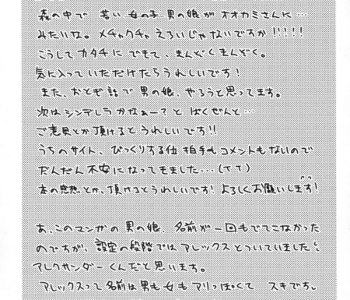 森の中で 女の子 男の娘がオオカミさんに…
みたいな。メチャクチャえろいじゃないですか!!!!
こうしてカタチにできて、まんぞくまんぞく。
気に入っていただけたらうれしいです!
また、おとぎ話で男の娘、やろうと思ってます。
次はシンデレラかなぁー?とばくぜんと…
ご意見とか頂けるとうれしいです!!
うちのサイト、びっくりする位拍手もコメントもないので
だんだん不安になってきました…(TT)
本の感想とか、頂けるとうれしいです!よろしくお願いします!
あ、このマンガの男の娘、名前が一回もでてこなかった
のですが、設定の段階ではアレックスとついていました。
アレクサンダーくんだと思います。
アレックスって名前は男も女もアリっぽくて スキです。